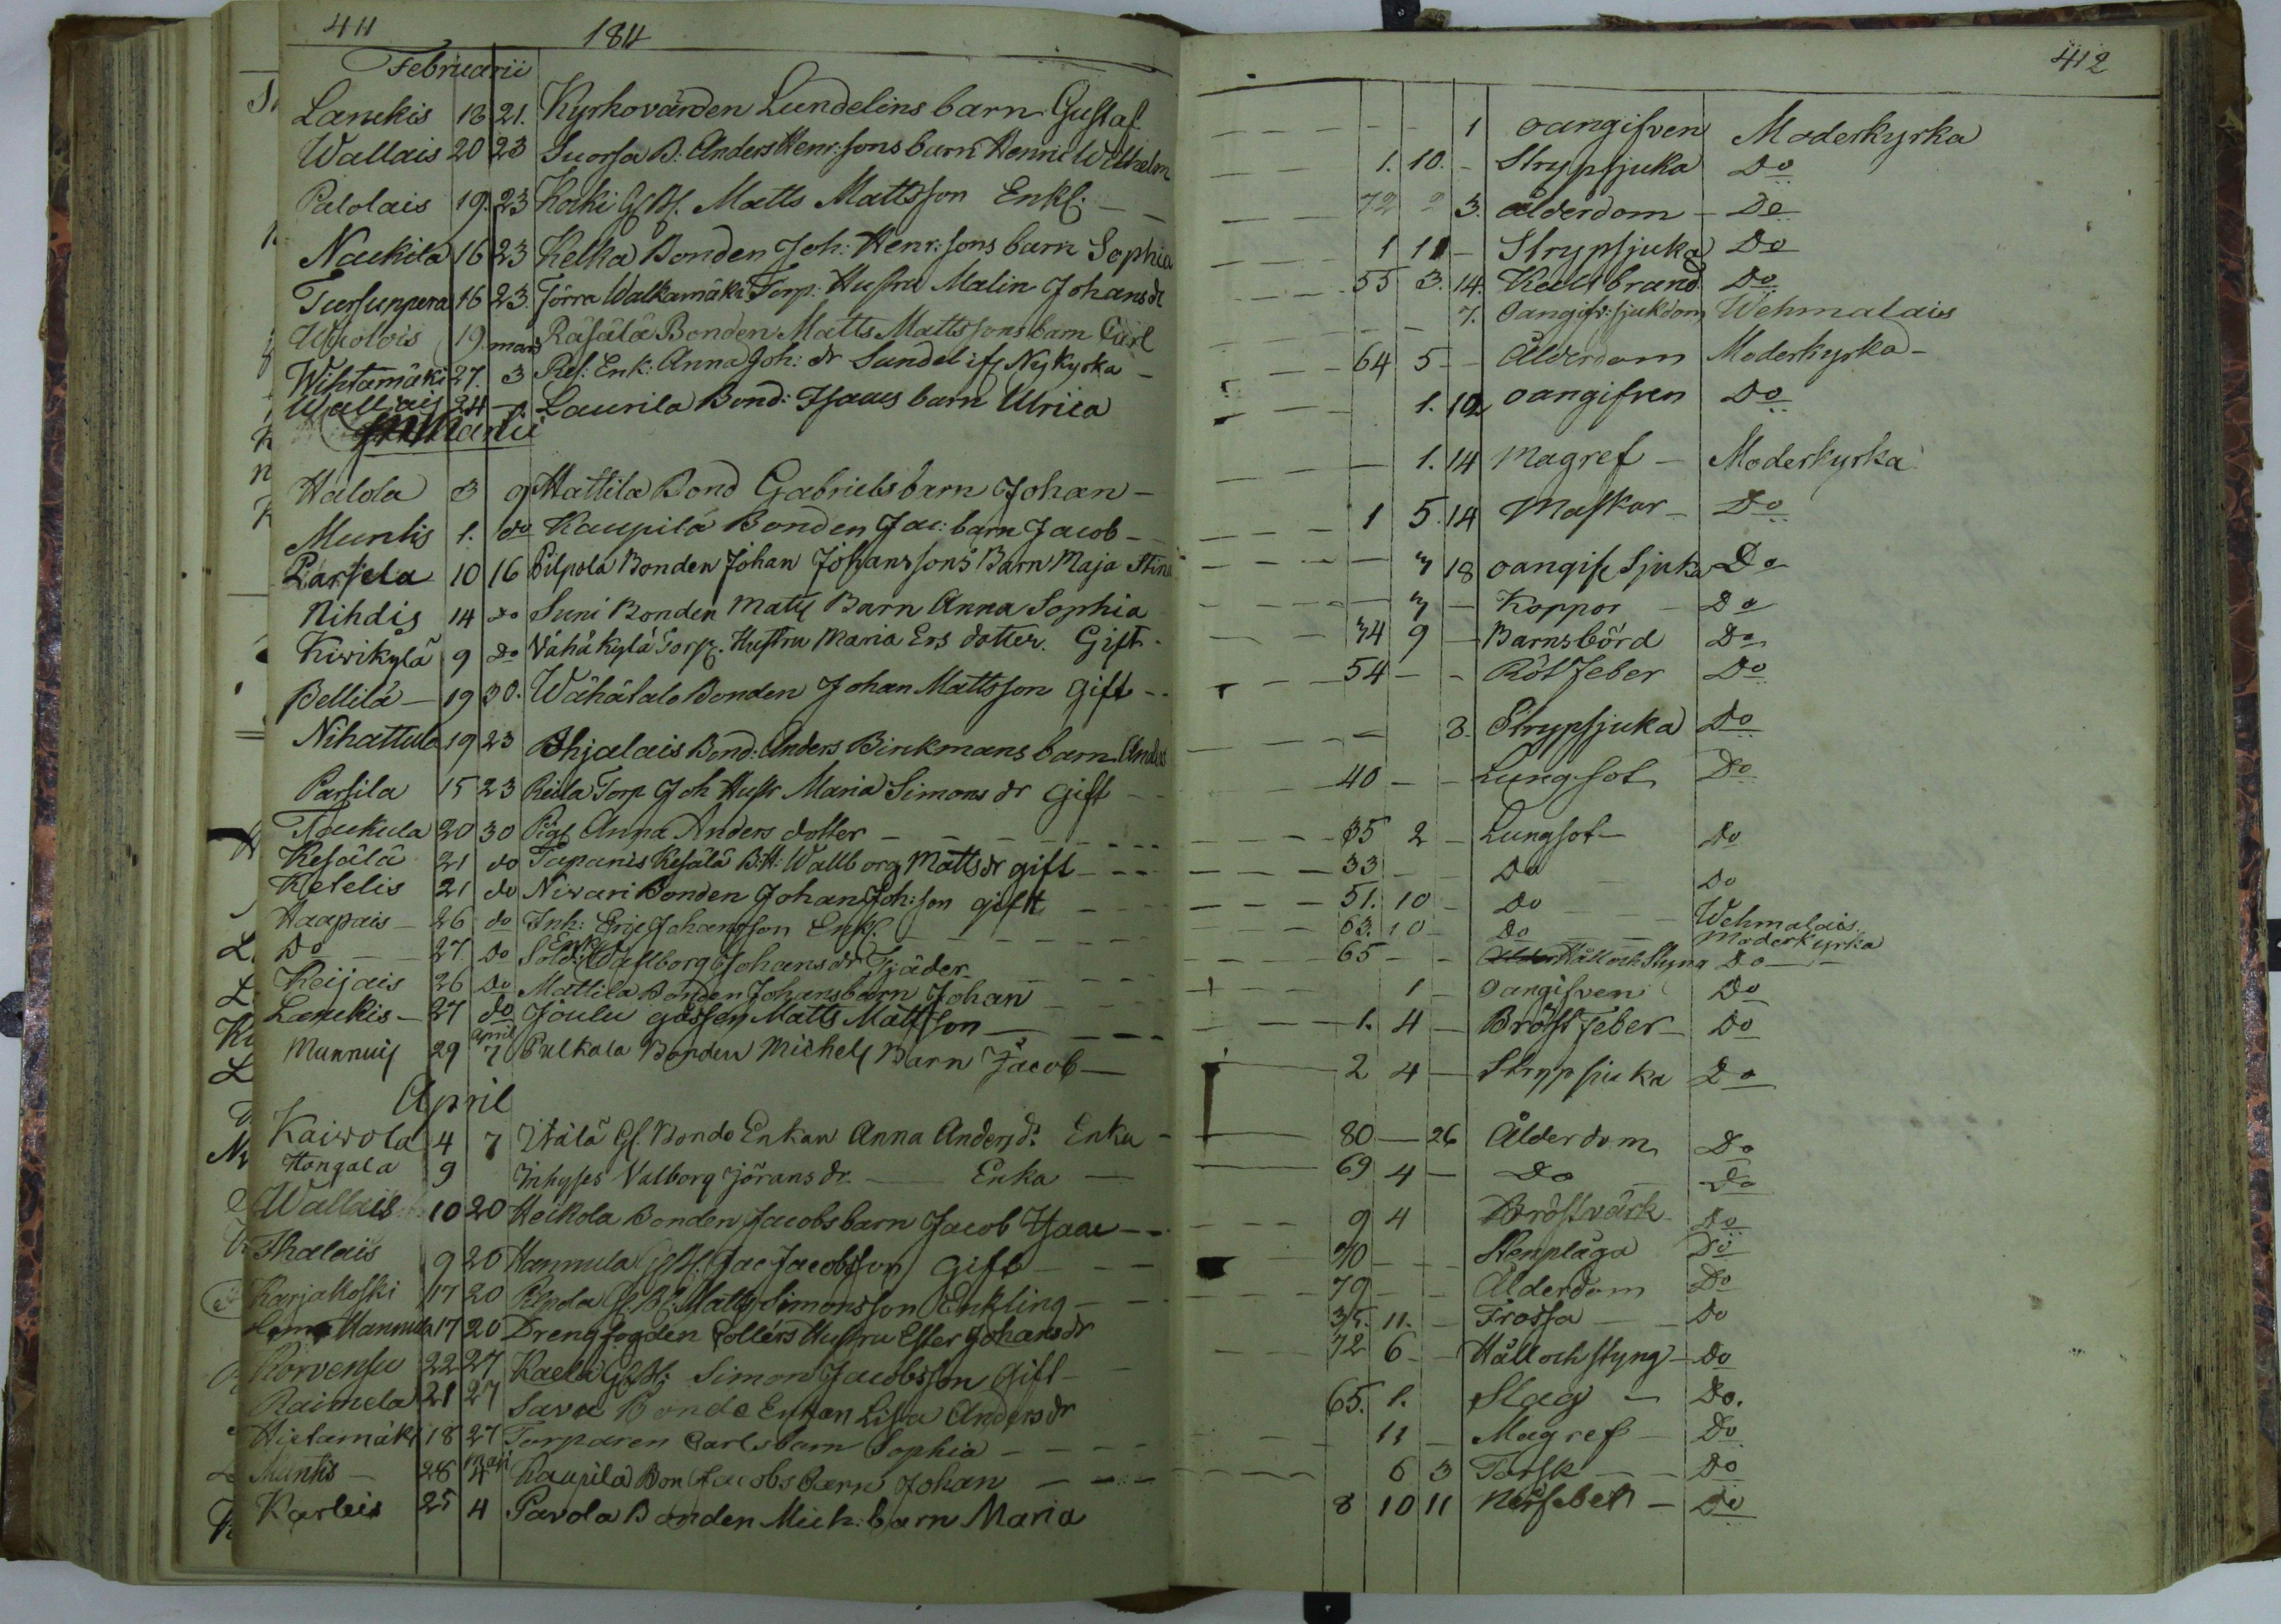 411
184
412
Februarii
Lanckis 18 21. Kyrkovärden Lundelins barn Gustaf 1 oangifven Moderkyrka
Wallais 20 23 Suorsa B: Anders Henr:sons barn Henric Wilhelm 1. 10. - Strypsjuka Do
Palolais 19. 23 Koiki Matts Mattsson Enkl: 72 2 3. ålderdom - Do
Naukila 16 23 Kelka Bonden Joh: Henr:sons barn Sophia 1 11 - Strypsjuka Do
Tursunpera 16 23. Jörra Walkamäki Torp: Hustru Malin Johansdr 55 3. 14. Kallbrand Do
19. mars Räsälä Bonden Matts Mattssons barn Carl 7. oangifv: sjukdom Wehmalais
Wihtamäki 27. 3 Enk: Anna Joh: dr Sundel if Nykyrka - 64 5 - Ålderdom Moderkyrka -
Wallais 24 Laurila Bond: Isaacs barn Ulrica 1. 12 oangifven Do
Martii
Halola 3 9 Mattila Bond Gabriels barn Johan - 1. 14 Magref - Moderkyrka
Muntis 1. do Kaupila Bonden Jac: barn Jacob - 1 5. 14 Maskar - Do
Parsela 10 16 Pilpola Bonden Johan Johanssons Barn Maja Stina 7 18 oangife Sjuka Do
Nihdis 14 do Suni Bonden Matts Barn Anna Sophia 7 - Koppor - Do
Kivikylä 9 do Vähäkylä Torp. Hustru Maria Ers dotter. Gift - 34 9 - Barnsbörd Do
Pellilä - 19 30. Wähätalo Bonden Johan Mattsson gift - 54 - - Rötfeber Do
Nihattula 19 23 Ohjalais Bond: Anders Binkmans barn Anders 3. Strypsjuka Do
Parsila 15 23 Reila Torp Joh Hustr Maria Simons dr gift - 40 - - Lungsot Do
Taukula 20 30 Pig Anna Anders dotter - 35 2 - Lungsot - Do
Kesälä 21 do Tapanis Kesälä B:H: Wallborg Matts dr gift - 33 Do Do
Ketelis 21 do Nivari Bonden Johan Joh:son gift 51. 10 - Do
Haapais - 26 do Inh: Erje Johansson Enkl. 63. 10 - Do Wehmalais.
Do 27. do Sold: Enk: Wallborg Johans dr Fjäder 65 - - Håll och Styng Do Moderkyrka
Keijais 26 Do Mattila Bonden Johans barn Johan 1 - oangifven Do
Lanckis - 27 do Joulu gossen Matts Mattsson 1. 4 - Bröstfeber - Do
Munnuis 29 april 7 Pulkala Bonden Michels Barn Jacob - 2 4 - Strypsjuka Do
April
Kaivola 4 7 Itälä Gl. Bonde Enkan Anna Anders dr Enka - 80 - 26 Ålderdom Do
Hongala 9 Inhyses Valborg Jörans dr. - Enka - 69 4 - Do - Do
Wallais 10 20 Heikola Bonden Jacobs barn Jacob Isaac - 9 4 Bröstvärk Do
Ihalais 9 20 Hannula Jac Jacobsson gift - 40 - - Stenplåga Do
Karjakoski 17 20 Pilpola Matts Simonsson Enkling - 79 - - Ålderdom Do
Hannula 17 20 Drengfogden Collérs Hustru Ester Johans dr 35. 11. - Frossa - Do
Korvensu 22 27 Kaela Simon Jacobsson gift - 72 6 - Håll och styng - Do
Raimela 21 27 Sava Bonde Enkan Lisa Anders dr 65. 1. Slag - Do.
Hietamäki 18 27 Torparen Carls barn Sophia - 11 - Magref - Do
Muntis - 28 maji 4 Kaupila Bon Jacobs Barn Johan - 6 3 Torsk - Do
Karleis 25 4 Pavola Bonden Mich: barn Maria 8 10 11 - Do